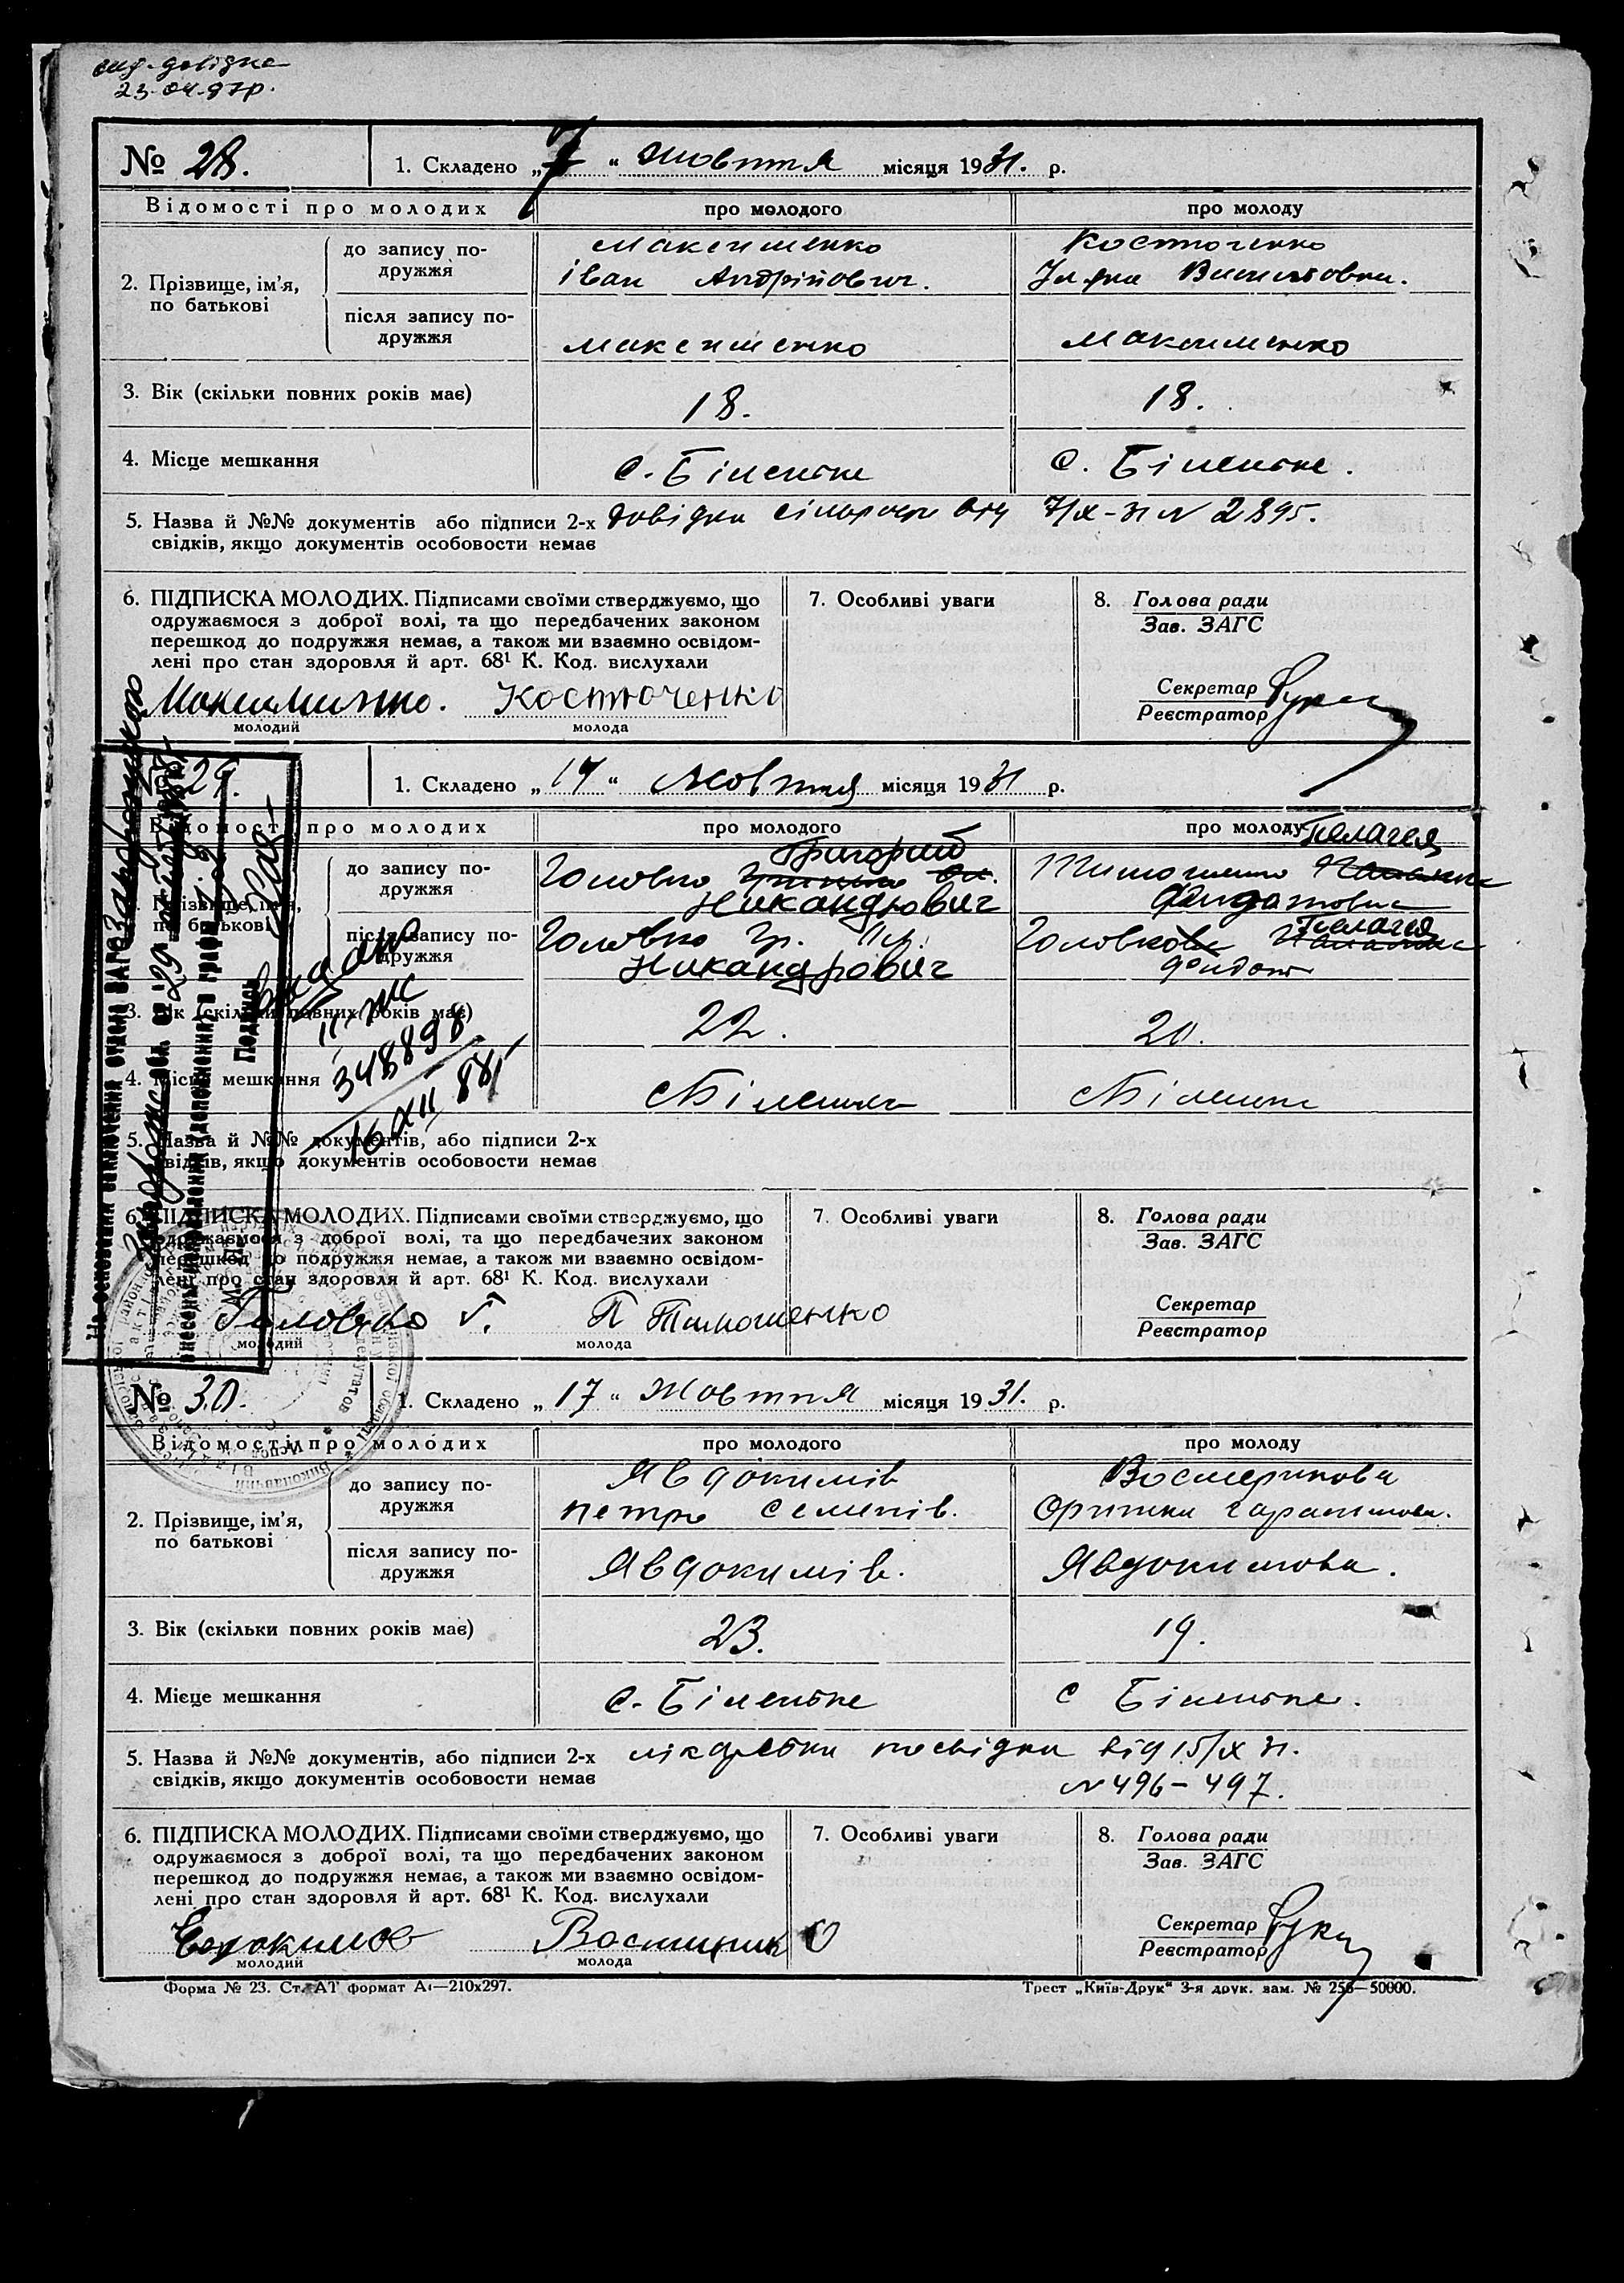 23-04-97р.
№ 28. 1. Складено „7“ Жовтня місяця 1931. р.
Відомості про молодих про молодого про молоду
2. Прізвище, ім'я, по батькові
до запису по-
дружжя
Максименко
Іван Андрійович.
Костюченко
після запису по-
дружжя
Максименко
Максименко
3. Вік (скільки повних років має) 18. 18.
4. Місце мешкання с. Біленьке с. Біленьке.
5. Назва й №№ документів або підписи 2-х довідка сільради від 7/X-31 N 2895.
свідків, якщо документів особовости немає
6. ПІДПИСКА МОЛОДИХ. Підписами своїми стверджуємо, що
одружаємося з доброї волі, та що передбачених законом
перешкод до подружжя немає, а також ми взаємно освідом-
лені про стан здоровля й арт. 68¹ К. Код. вислухали
Максименко. Костюченко
молодий молода
7. Особливі уваги
8. Голова ради
Зав. ЗАГС
Секретар
Реєстратор
29. 1. Складено „17“ Жовтня місяця 1931 р.
Відомості про молодих про молодого про молоду
Прізвище, ім'я,
по батькові
до запису по-
дружжя
Григорий
Головко
Никандрович
Пелагея
Тимошенко
після запису по-
дружжя
Головко Гр.
Никандрович
Пелагея
Головко
3. Вік (скільки повних років має) 22. 20.
4. Місце мешкання с Біленьке с Біленьке
5. Назва й №№ документів, або підписи 2-х
свідків, якщо документів особовости немає
6. ПІДПИСКА МОЛОДИХ. Підписами своїми стверджуємо, що
одружаємося з доброї волі, та що передбачених законом
перешкод до подружжя немає, а також ми взаємно освідом-
лені про стан здоровля й арт. 68¹ К. Код. вислухали
Головко Г. П Тимошенко
молодий молода
7. Особливі уваги
8. Голова ради
Зав. ЗАГС
Секретар
Реєстратор
На основании заключения отдела ЗАГС Запорожского
внесены исправления (дополнения) в графы
М. П. Подпись
Видано
II-ЖС
348898
16 XII 88
№ 30. 1. Складено „17“ Жовтня місяця 1931. р.
Відомості про молодих про молодого про молоду
2. Прізвище, ім'я,
по батькові
до запису по-
дружжя
Явдокимів
Петро Семенів.
Восмерикова
після запису по-
дружжя
Явдокимів.
Явдокимова.
3. Вік (скільки повних років має) 23. 19.
4. Місце мешкання с. Біленьке с Біленьке.
5. Назва й №№ документів, або підписи 2-х лікарські посвідки від 15/X 31.
свідків, якщо документів особовости немає N 496-497.
6. ПІДПИСКА МОЛОДИХ. Підписами своїми стверджуємо, що
одружаємося з доброї волі, та що передбачених законом
перешкод до подружжя немає, а також ми взаємно освідом-
лені про стан здоровля й арт. 68¹ К. Код. вислухали
Евдокимов
молодий молода
7. Особливі уваги
8. Голова ради
Зав. ЗАГС
Секретар
Реєстратор
Форма № 23. Ст. АТ формат А₄—210x297. Трест „Київ-Друк“ 3-я друк. зам. № 256—50000.